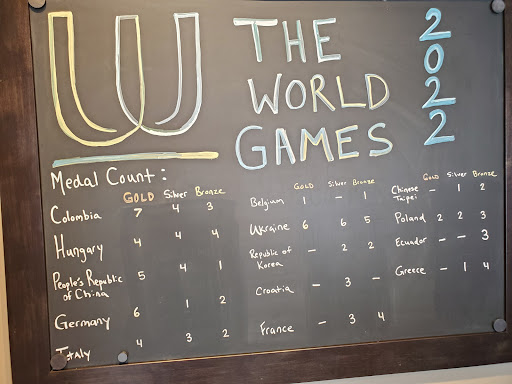 W THE WORLD GAMES 2022
Medal Count:
GOLD Silver Bronze
Colombia 7 4 3
Hungary 4 4 4
People's Republic of China 5 4 1
Germany 6 1 2
Italy 4 3 2
GOLD Silver Bronze
Belgium 1 - 1
Ukraine 6 6 5
Republic of Korea - 2 2
Croatia - 3 -
France - 3 4
Gold Silver Bronze
Chinese Taipei - 1 2
Poland 2 2 3
Ecuador - - 3
Greece - 1 4